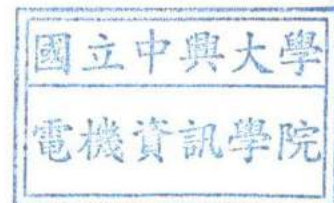 國立中興大學
電機資訊學院